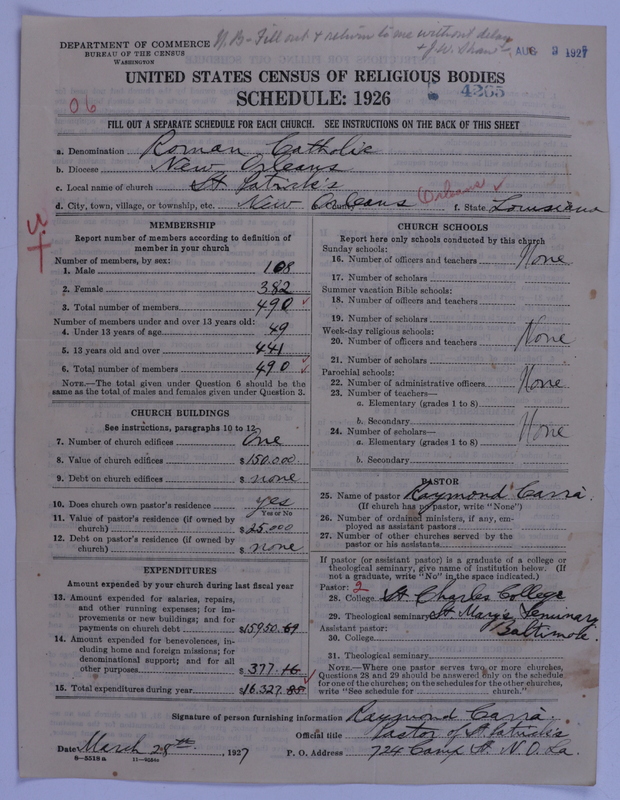 N.B- Fill out & return to me without delay
DEPARTMENT OF COMMERCE
BUREAU OF THE CENSUS
WASHINGTON
AUG 3 1927
UNITED STATES CENSUS OF RELIGIOUS BODIES
SCHEDULE: 1926
06
4265
FILL OUT A SEPARATE SCHEDULE FOR EACH CHURCH. SEE INSTRUCTIONS ON THE BACK OF THIS SHEET
a. Denomination Roman Catholic
b. Diocese New Orleans
c. Local name of church St Patrick's
d. City, town, village, or township, etc. New Orleans e. County Orleans f. State Louisiana
MEMBERSHIP
Report number of members according to definition of
member in your church
Number of members, by sex:
1. Male 108
2. Female 382
3. Total number of members 490
Number of members under and over 13 years old:
4. Under 13 years of age 49
5. 13 years old and over 441
6. Total number of members 490
NOTE.—The total given under Question 6 should be
same as the total of males and females given under Question 3.
CHURCH BUILDINGS
See instructions, paragraphs 10 to 12
7. Number of church edifices One
8. Value of church edifices $150.000
9. Debt on church edifices $ none
10. Does church own pastor's residence yes
Yes or No
11. Value of pastor's residence (if owned by
church) $25.000
12. Debt on pastor's residence (if owned by
church) $ none
EXPENDITURES
Amount expended by your church during last fiscal year
13. Amount expended for salaries, repairs,
and other running expenses; for im-
provements or new buildings; and for
payments on church debt $15950.69
14. Amount expended for benevolences, in-
cluding home and foreign missions; for
denominational support; and for all
other purposes $377.16
15. Total expenditures during year $16.327.85
CHURCH SCHOOLS
Report here only schools conducted by this church
Sunday schools:
16. Number of officers and teachers None
17. Number of scholars
Summer vacation Bible schools:
18. Number of officers and teachers
19. Number of scholars
Week-day religious schools:
20. Number of officers and teachers None
21. Number of scholars
Parochial schools:
22. Number of administrative officers None
23. Number of teachers—
a. Elementary (grades 1 to 8)
b. Secondary
24. Number of scholars— None
a. Elementary (grades 1 to 8)
b. Secondary
PASTOR
25. Name of pastor Raymond Carrà.
(If church has no pastor, write "None")
26. Number of ordained ministers, if any, em-
ployed as assistant pastors
27. Number of other churches served by the
pastor or his assistants
If pastor (or assistant pastor) is a graduate of a college or
theological seminary, give name of institution below. (If
not a graduate, write "No" in the space indicated.)
Pastor: 2
28. College St. Charles College
29. Theological seminary St. Mary's Seminary
Assistant pastor: Baltimore.
30. College
31. Theological seminary
NOTE.—Where one pastor serves two or more churches,
Questions 28 and 29 should be answered only on the schedule
for one of the churches; on the schedules for the other churches,
write "See schedule for church."
Signature of person furnishing information Raymond Carrà.
Official title Pastor of St. Patrick's
Date March 28th, 1927 P. O. Address 724 Camp St. N. O. La.
8-5518a